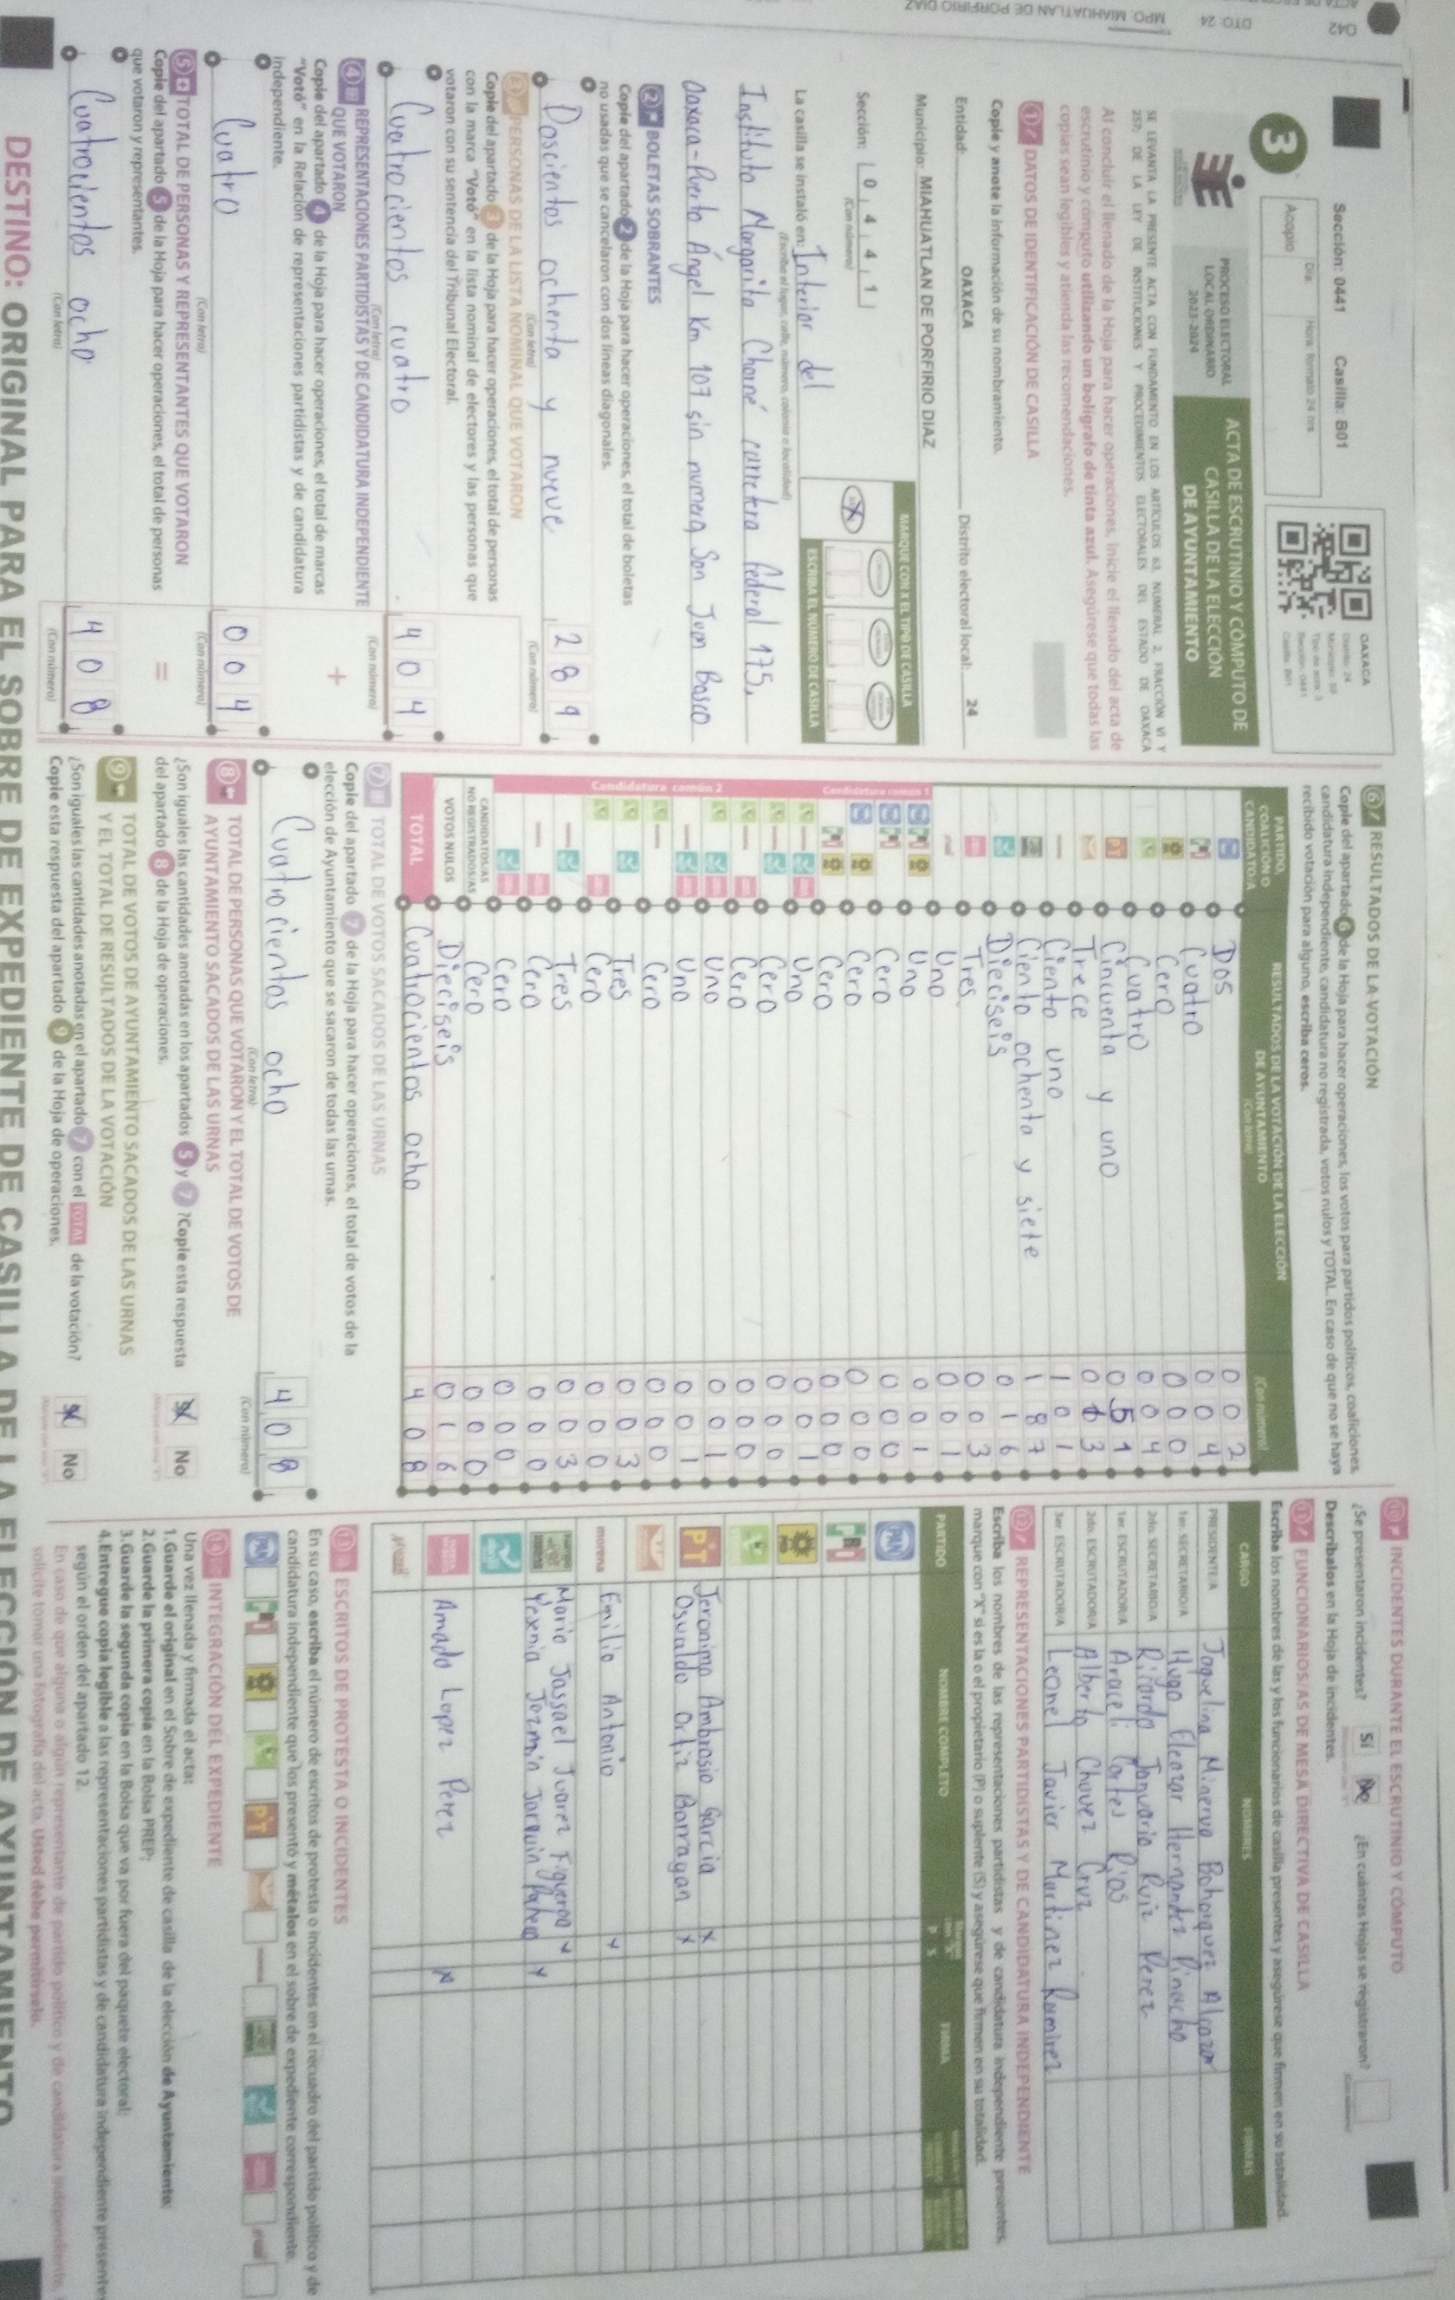 042
DTO: 24
MPO: MIAHUATLAN DE PORFIRIO DIAZ
Sección: 0441 Casilla: B01
3
Acopio
Día:
Hora: formato 24 hrs.
OAXACA
PROCESO ELECTORAL
LOCAL ORDINARIO
2023-2024
ACTA DE ESCRUTINIO Y CÓMPUTO DE
CASILLA DE LA ELECCIÓN
DE AYUNTAMIENTO
SE LEVANTA LA PRESENTE ACTA CON FUNDAMENTO EN LOS ARTÍCULOS 63, NUMERAL 2, FRACCIÓN VI Y
257; DE LA LEY DE INSTITUCIONES Y PROCEDIMIENTOS ELECTORALES DEL ESTADO DE OAXACA
Al concluir el llenado de la Hoja para hacer operaciones, inicie el llenado del acta de
escrutinio y cómputo utilizando un bolígrafo de tinta azul. Asegúrese que todas las
copias sean legibles y atienda las recomendaciones.
1 DATOS DE IDENTIFICACIÓN DE CASILLA
Copie y anote la información de su nombramiento.
Entidad: OAXACA Distrito electoral local: 24
Municipio: MIAHUATLAN DE PORFIRIO DIAZ
Sección: 0 4 4 1
(Con número)
MARQUE CON X EL TIPO DE CASILLA
X
ESCRIBA EL NÚMERO DE CASILLA
La casilla se instaló en: Interior del
(Escriba el lugar, calle, número, colonia o localidad)
Instituto Margarita Chorné carretera federal 175,
Oaxaca-Puerto Ángel Km 107 sin numero, San Juan Bosco
2 BOLETAS SOBRANTES
Copie del apartado 2 de la Hoja para hacer operaciones, el total de boletas
no usadas que se cancelaron con dos líneas diagonales.
Doscientos ochenta y nueve 2 8 9
(Con letra) (Con número)
3 PERSONAS DE LA LISTA NOMINAL QUE VOTARON
Copie del apartado 3 de la Hoja para hacer operaciones, el total de personas
con la marca "Votó" en la lista nominal de electores y las personas que
votaron con su sentencia del Tribunal Electoral.
Cuatrocientos cuatro 4 0 4
(Con letra) (Con número)
4 REPRESENTACIONES PARTIDISTAS Y DE CANDIDATURA INDEPENDIENTE
QUE VOTARON
+
Copie del apartado 4 de la Hoja para hacer operaciones, el total de marcas
"Votó" en la Relación de representaciones partidistas y de candidatura
independiente.
Cuatro 0 0 4
(Con letra) (Con número)
5 TOTAL DE PERSONAS Y REPRESENTANTES QUE VOTARON
=
Copie del apartado 5 de la Hoja para hacer operaciones, el total de personas
que votaron y representantes.
Cuatrocientos ocho 4 0 8
(Con letra) (Con número)
6 RESULTADOS DE LA VOTACIÓN
Copie del apartado 6 de la Hoja para hacer operaciones, los votos para partidos políticos, coaliciones,
candidatura independiente, candidatura no registrada, votos nulos y TOTAL. En caso de que no se haya
recibido votación para alguno, escriba ceros.
PARTIDO, COALICIÓN O CANDIDATO/A
RESULTADOS DE LA VOTACIÓN DE LA ELECCIÓN
DE AYUNTAMIENTO
(Con letra) (Con número)
Dos 0 0 2
Cuatro 0 0 4
Cero 0 0 0
Cuatro 0 0 4
PT Cincuenta y uno 0 5 1
Trece 0 1 3
Ciento uno 1 0 1
Ciento ochenta y siete 1 8 7
Dieciseis 0 1 6
Tres 0 0 3
Uno 0 0 1
Candidatura común 1
Uno 0 0 1
Cero 0 0 0
Cero 0 0 0
Cero 0 0 0
Candidatura común 2
Uno 0 0 1
Cero 0 0 0
Cero 0 0 0
Uno 0 0 1
Uno 0 0 1
Cero 0 0 0
Tres 0 0 3
Cero 0 0 0
Tres 0 0 3
Cero 0 0 0
Cero 0 0 0
CANDIDATOS/AS NO REGISTRADOS/AS Cero 0 0 0
VOTOS NULOS Dieciseis 0 1 6
TOTAL Cuatrocientos ocho 4 0 8
7 TOTAL DE VOTOS SACADOS DE LAS URNAS
Copie del apartado 7 de la Hoja para hacer operaciones, el total de votos de la
elección de Ayuntamiento que se sacaron de todas las urnas.
Cuatrocientos ocho 4 0 8
(Con letra) (Con número)
8 TOTAL DE PERSONAS QUE VOTARON Y EL TOTAL DE VOTOS DE
AYUNTAMIENTO SACADOS DE LAS URNAS
¿Son iguales las cantidades anotadas en los apartados 5 y 7 ?Copie esta respuesta
del apartado 8 de la Hoja de operaciones.
Sí No
9 TOTAL DE VOTOS DE AYUNTAMIENTO SACADOS DE LAS URNAS
Y EL TOTAL DE RESULTADOS DE LA VOTACIÓN
¿Son iguales las cantidades anotadas en el apartado 7 con el TOTAL de la votación?
Copie esta respuesta del apartado 9 de la Hoja de operaciones.
Sí No
10 INCIDENTES DURANTE EL ESCRUTINIO Y CÓMPUTO
¿Se presentaron incidentes? Sí No ¿En cuántas Hojas se registraron?
Descríbalos en la Hoja de incidentes.
11 FUNCIONARIOS/AS DE MESA DIRECTIVA DE CASILLA
Escriba los nombres de las y los funcionarios de casilla presentes y asegúrese que firmen en su totalidad.
CARGO NOMBRES FIRMAS
PRESIDENTE/A Jaquelina Minerva Bohorquez Alcazar
1er. SECRETARIO/A Hugo Eleazar Hernandez Pinacho
2do. SECRETARIO/A Ricardo Januario Ruiz Perez
1er. ESCRUTADOR/A Araceli Cortes Rios
2do. ESCRUTADOR/A Alberto Chavez Cruz
3er. ESCRUTADOR/A Leonel Javier Martinez Ramirez
12 REPRESENTACIONES PARTIDISTAS Y DE CANDIDATURA INDEPENDIENTE
Escriba los nombres de las representaciones partidistas y de candidatura independiente presentes,
marque con "X" si es la o el propietario (P) o suplente (S) y asegúrese que firmen en su totalidad.
PARTIDO NOMBRE COMPLETO P S FIRMA
PAN
PRI
PT Jeronimo Ambrosio Garcia x
Osvaldo Ortiz Barragan x
morena Emilio Antonio x
Mario Jassael Juarez Figueroa x
Yexenia Jazmin Jarquin Pacheco x
Amado Lopez Perez x
13 ESCRITOS DE PROTESTA O INCIDENTES
En su caso, escriba el número de escritos de protesta o incidentes en el recuadro del partido político y de
candidatura independiente que los presentó y métalos en el sobre de expediente correspondiente.
PAN PT
14 INTEGRACIÓN DEL EXPEDIENTE
Una vez llenada y firmada el acta:
1.Guarde el original en el Sobre de expediente de casilla de la elección de Ayuntamiento;
2.Guarde la primera copia en la Bolsa PREP;
3.Guarde la segunda copia en la Bolsa que va por fuera del paquete electoral;
4.Entregue copia legible a las representaciones partidistas y de candidatura independiente presentes
según el orden del apartado 12.
En caso de que alguna o algún representante de partido político y de candidatura independiente,
solicite tomar una fotografía del acta, Usted debe permitírselo.
DESTINO: ORIGINAL PARA EL SOBRE DE EXPEDIENTE DE CASILLA DE LA ELECCIÓN DE AYUNTAMIENTO